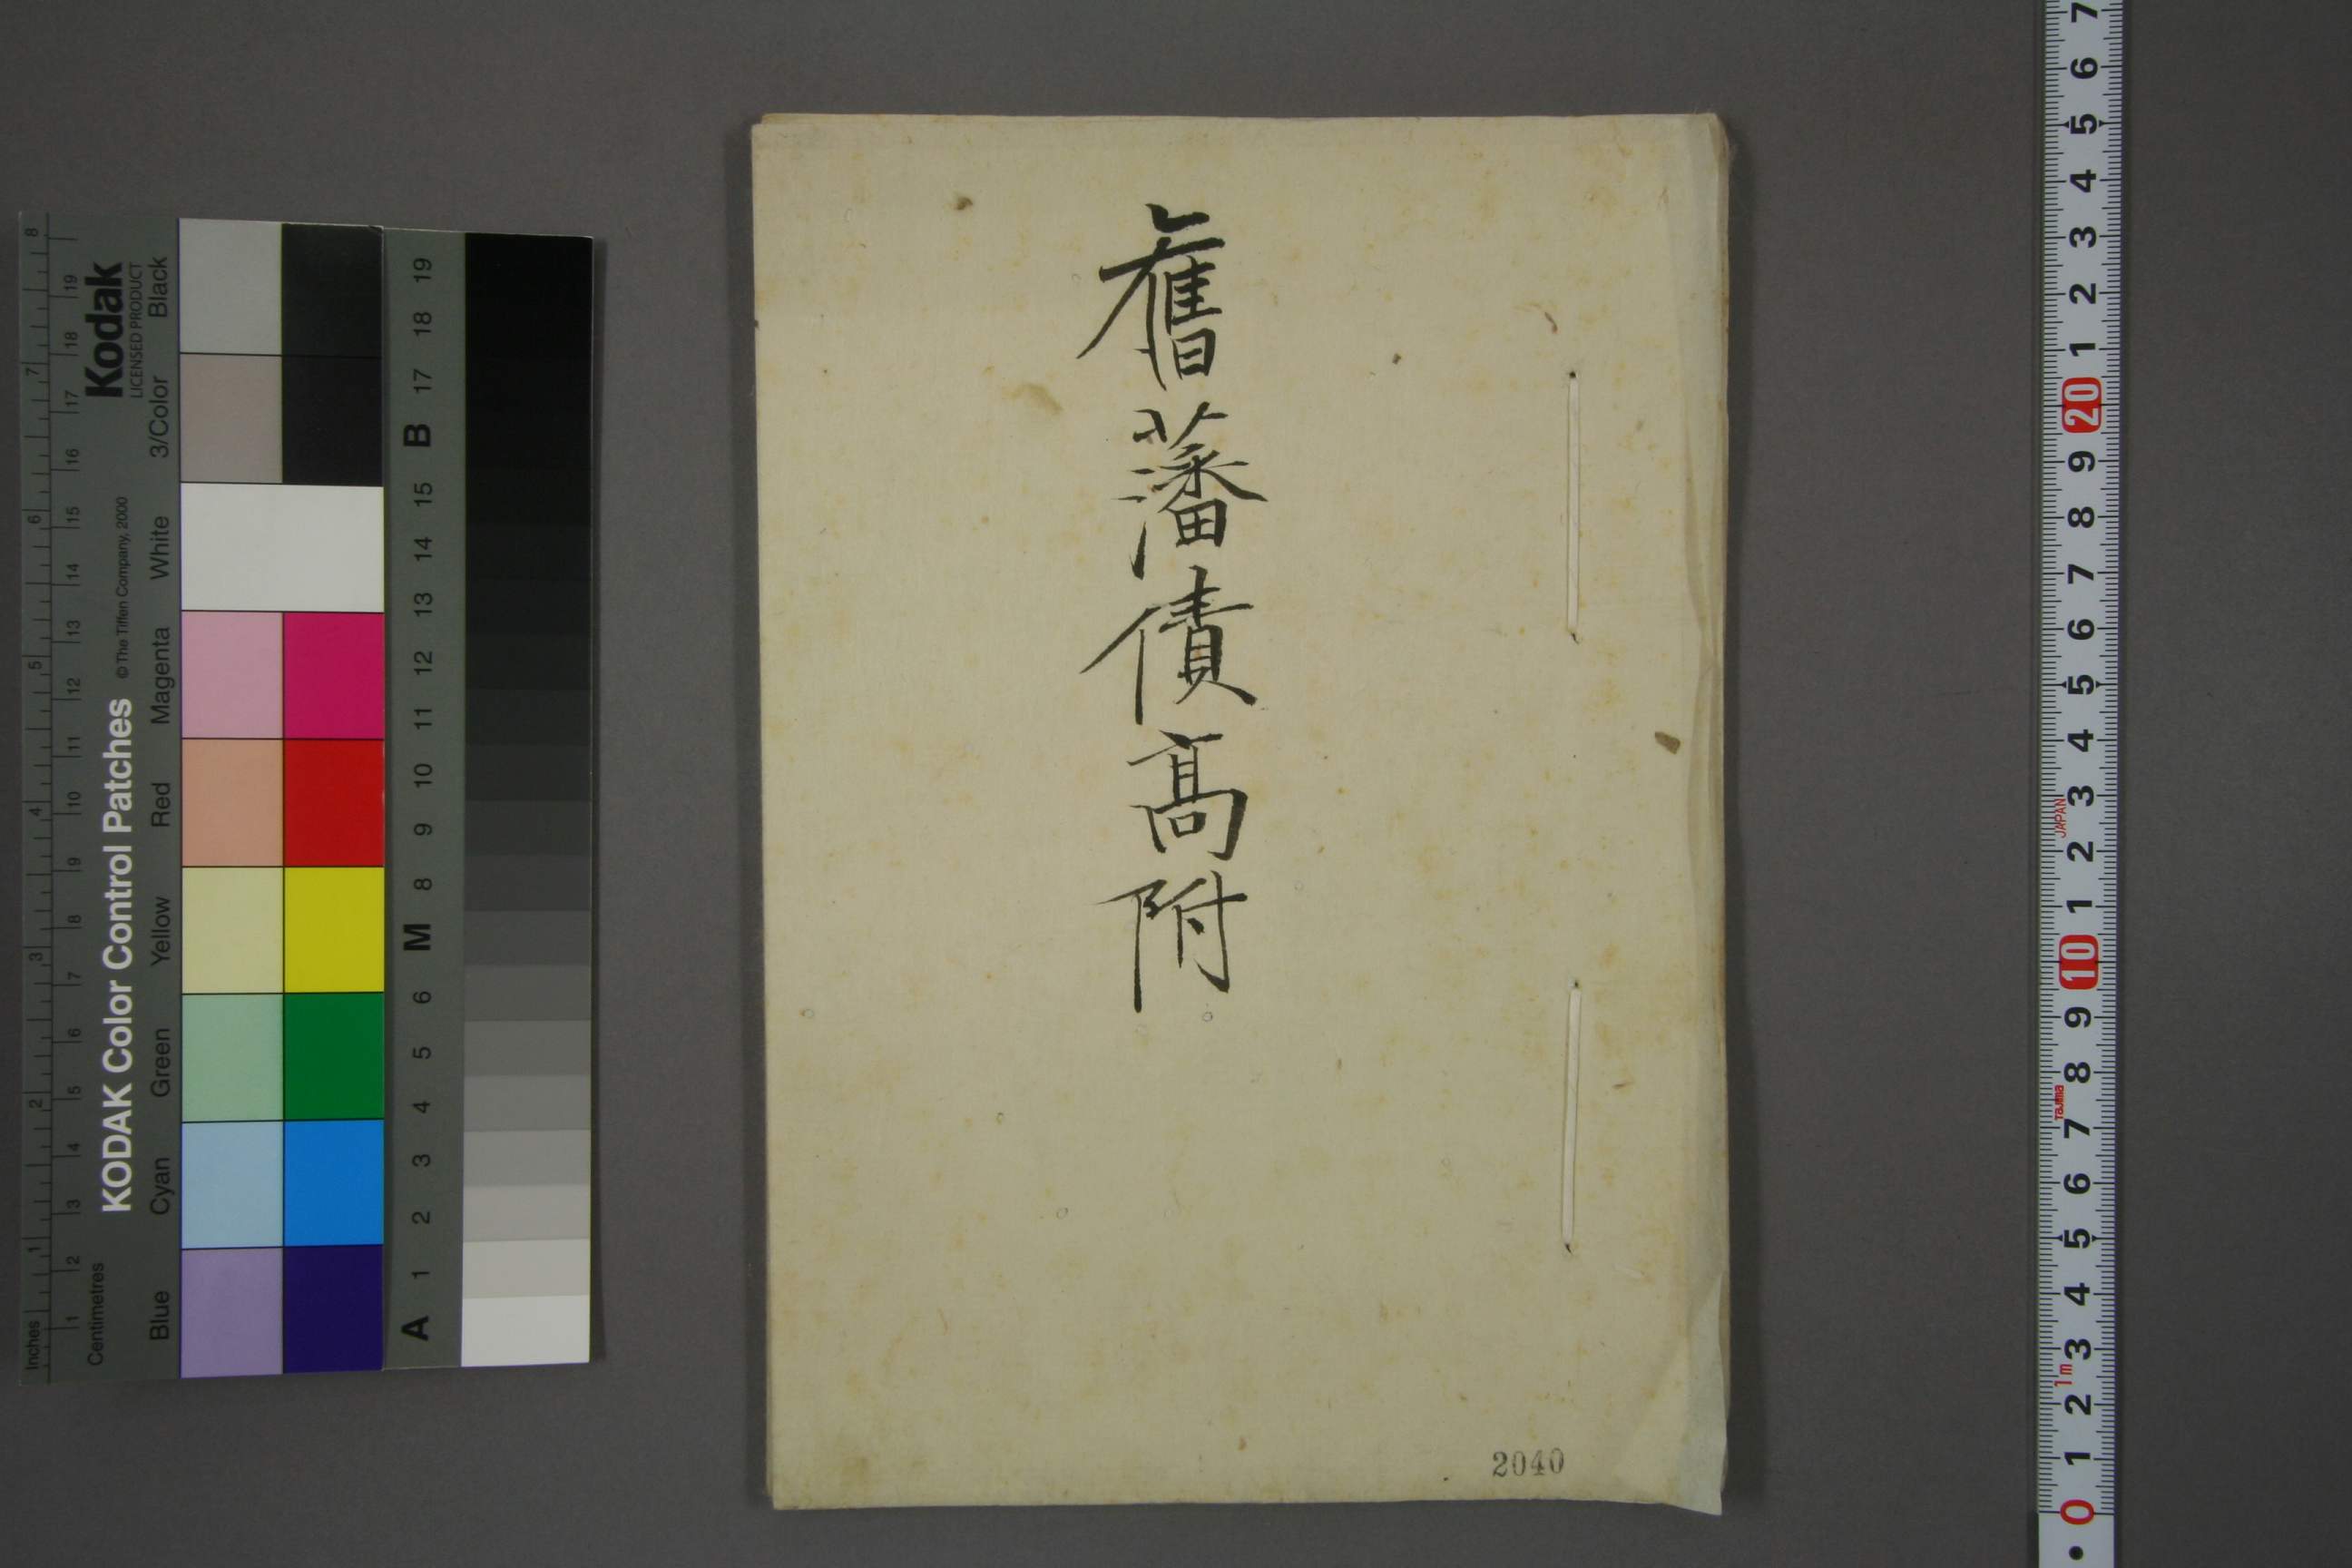 舊藩債高附
2040
KODAK Color Control Patches
© The Tiffen Company, 2000
Kodak
LICENSED PRODUCT
Inches
1 2 3 4 5 6 7 8
Centimetres
1 2 3 4 5 6 7 8 9 10 11 12 13 14 15 16 17 18 19
Blue
Cyan
Green
Yellow
Red
Magenta
White
3/Color
Black
A 1 2 3 4 5 6 M 8 9 10 11 12 13 14 15 B 17 18 19
0 1 2 3 4 5 6 7 8 9 10 1 2 3 4 5 6 7 8 9 20 1 2 3 4 5 6 7
1m
Tajima
JAPAN